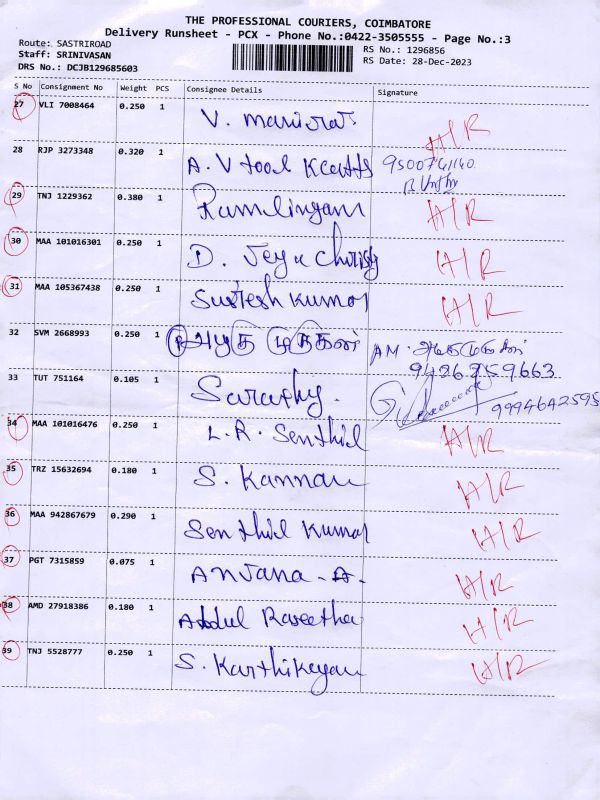 THE PROFESSIONAL COURIERS, COIMBATORE
Delivery Runsheet - PCX - Phone No.:0422-3505555 - Page No.:3
Route: SASTRIROAD
RS No.: 1296856
Staff: SRINIVASAN
RS Date: 28-Dec-2023
DRS No.: DCJB129685603
S No Consignment No Weight PCS Consignee Details Signature
27 VLI 7008464 0.250 1 V. H/R
28 RJP 3273348 0.320 1 A. V tool 9500741140
29 TNJ 1229362 0.380 1 Ramlingam H/R
30 MAA 101016301 0.250 1 D. Jeya H/R
31 MAA 105367438 0.250 1 Sutesh Kumar H/R
32 SVM 2668993 0.250 1 AM.
33 TUT 751164 0.105 1 Sarathy. 9994642595
34 MAA 101016476 0.250 1 L.R. Senthil H/R
35 TRZ 15632694 0.180 1 S. Kannan H/R
36 MAA 942867679 0.290 1 Senthil Kumar H/R
37 PGT 7315859 0.075 1 Anjana -A- H/R
38 AMD 27918386 0.180 1 Abdul Raseetha H/R
39 TNJ 5528777 0.250 1 S. Karthikeyan H/R